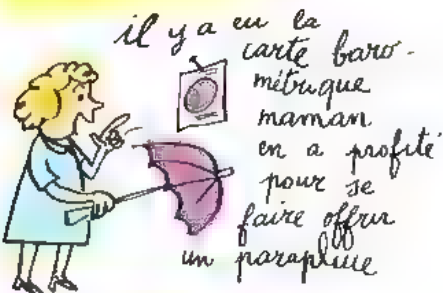 il y a eu la
carte baro-
métrique
maman
en a profité
pour se
faire offrir
un parapluie